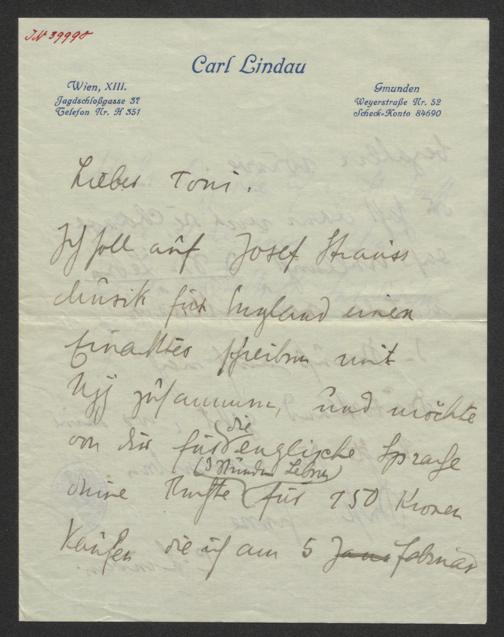 JN 39998
Carl Lindau
Wien, XIII.
Jagdschloßgasse 37
Telefon Nr. H 351
Gmunden
Weyerstraße Nr. 52
Scheck-Konto 84690
Lieber Toni.
Ich soll auf Josef Strauss
Musik für England einen
Einakter schreiben mit
zusammen, und möchte
von dir für die englische Sprache
deine Rechte für 150 Kronen
Kaufen die ich am 5 Februar